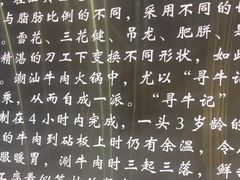 与脂肪比例的不同，采用不同的切
。雪花、三花健、吊龙、肥胼、是
精湛的刀工下变换不同形状，如此
。潮汕牛肉火锅中，尤以“寻牛记”
乘，从而自成一派。“寻牛记”
制在4小时内完成，一头3岁龄的
的牛肉到砧板上时仍有余温，令
服暖胃，涮牛肉时三起三落，鲜